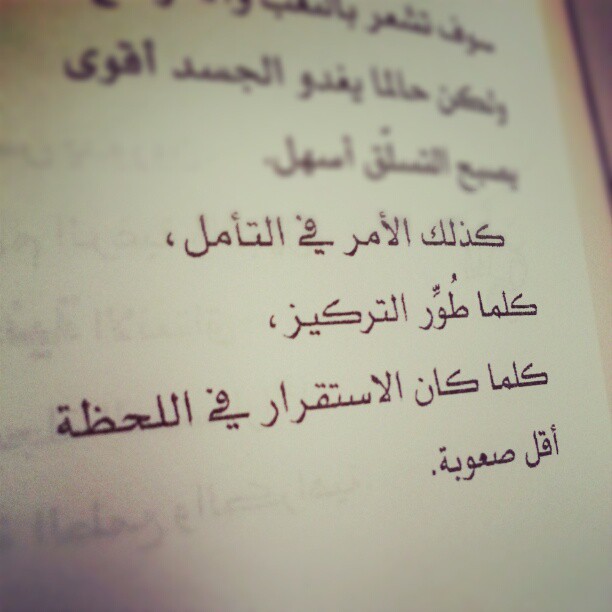 سوف تشعر بالتعب
ولكن حالما يغدو الجسد أقوى
يصبح التسلّق أسهل.
كذلك الأمر في التأمل،
كلما طُوِّر التركيز،
كلما كان الاستقرار في اللحظة
أقل صعوبة.